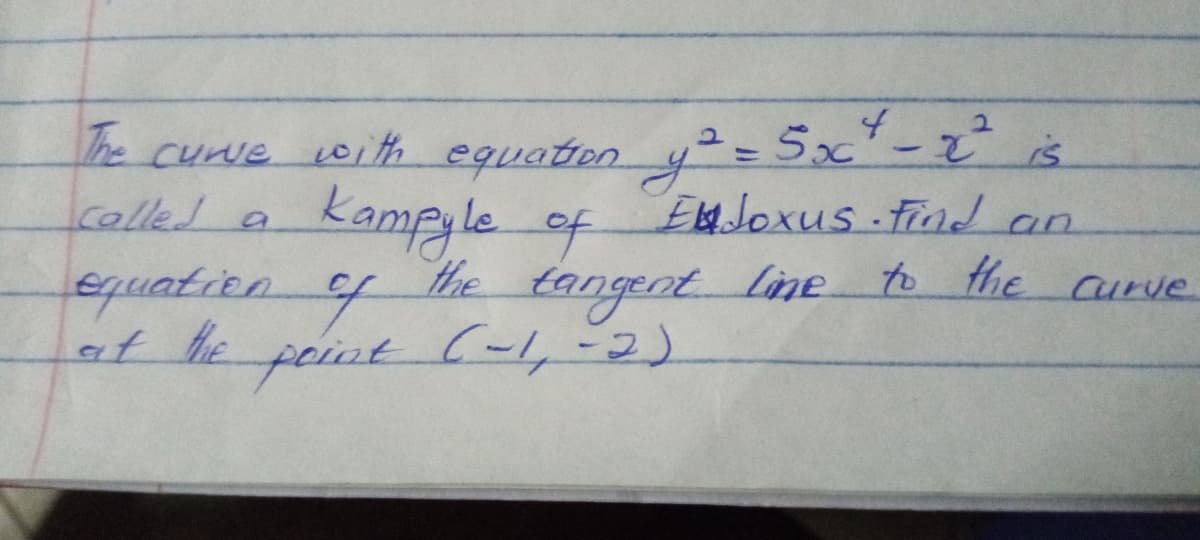 The curve with equation y² = 5x⁴ - x² is
called a kampyle of Eudoxus. Find an
equation of the tangent line to the curve
at the point (-1, -2)